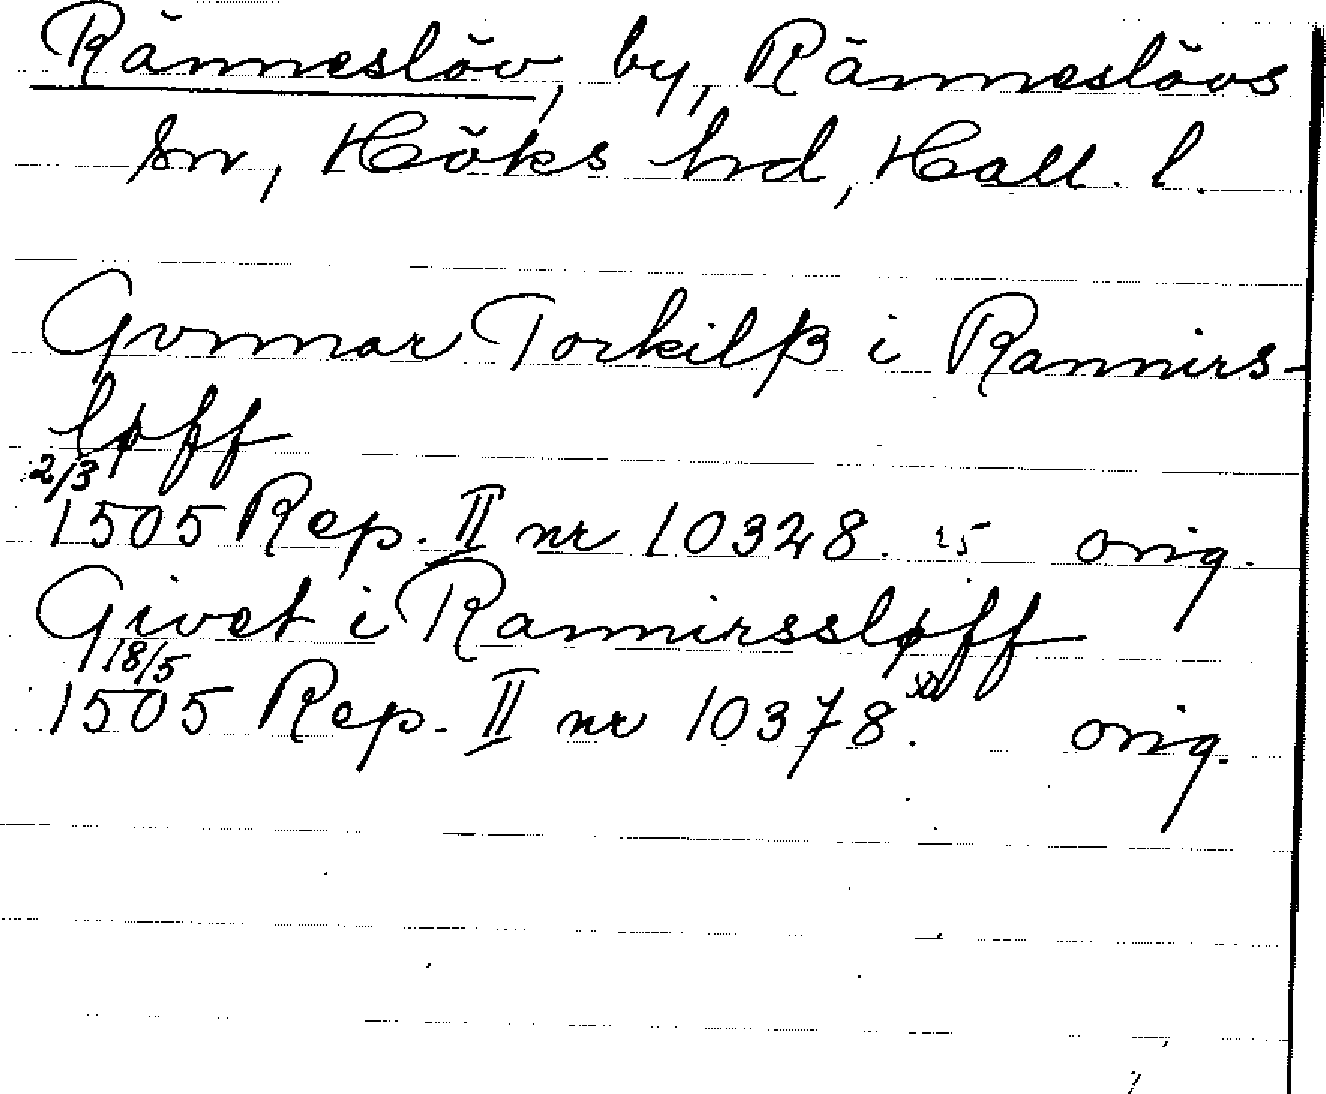 Ränneslöv, by, Ränneslövs
sn, Höks hrd, Hall. l.
Gvnnar Torkilß i Rannirs-
løff
2/3
1505 Rep. II nr 10328. 25 orig.
Givet i Rannirssløff
18/5
1505 Rep. II nr 10378. orig.